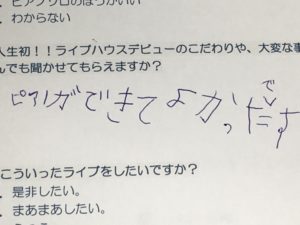 . ピアノソロのほうがいい
. わからない
人生初！！ライブハウスデビューのこだわりや、大変な事
んでも聞かせてもらえますか？
ピアノができてよかったです
こういったライブをしたいですか？
. 是非したい。
. まあまあしたい。